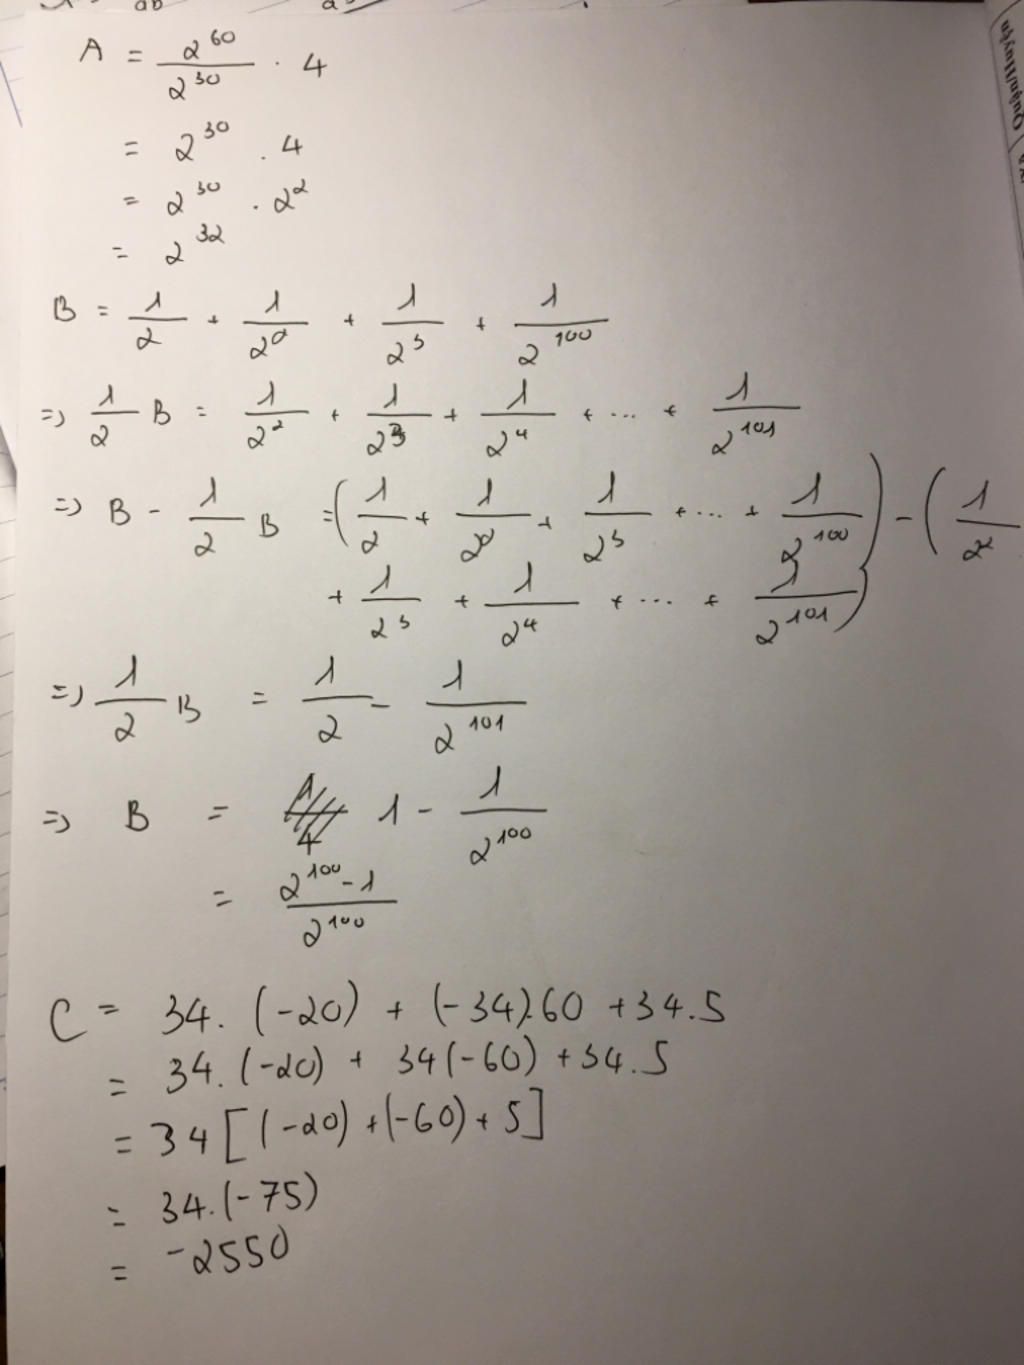 ab
A = 2^60 / 2^30 . 4
= 2^30 . 4
= 2^30 . 2^2
= 2^32
B = 1/2 + 1/2^2 + 1/2^3 + 1/2^100
=> 1/2 B = 1/2^2 + 1/2^3 + 1/2^4 + ... + 1/2^101
=> B - 1/2 B = (1/2 + 1/2^2 + 1/2^3 + ... + 1/2^100) - (1/2^2
+ 1/2^3 + 1/2^4 + ... + 1/2^101)
=> 1/2 B = 1/2 - 1/2^101
=> B = 1 - 1/2^100
= (2^100 - 1) / 2^100
C = 34. (-20) + (-34).60 + 34.5
= 34. (-20) + 34(-60) + 34.5
= 34 [(-20) + (-60) + 5]
= 34.(-75)
= -2550
Quận/Huyện